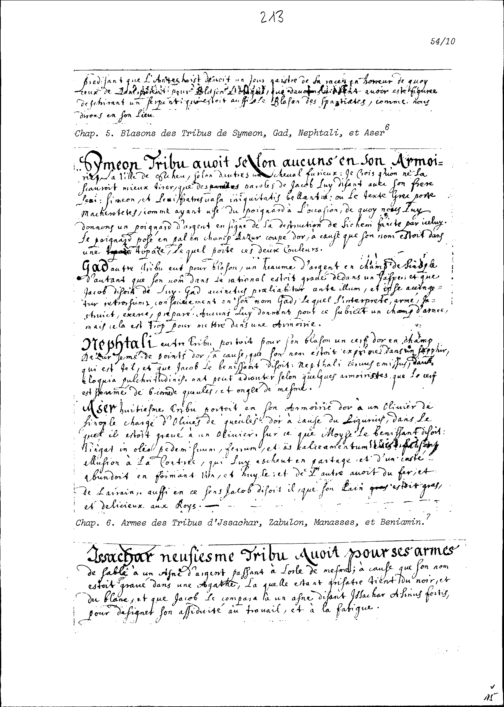 213
54/10
predisant que L'Antechrist un Jour de sa en horreur de quoy
ceux de pour Blason avoir este figurez
un serpent qui estoit aussi le Blason des Spartiates, comme nous
dirons en son Lieu
Chap. 5. Blasons des Tribus de Symeon, Gad, Nephtali, et Aser⁶
Symeon Tribu avoit selon aucuns en son Armoi-
La Ville de Sichem, selon d'autres un cheval furieux; Je crois qu'on ne La
sçauroit mieux tirer, que des paroles de Jacob Luy disant avec son frere
Levi: Simeon, et Levi fratres vasa iniquitatis bellantia; ou Le texte Grec porte
Machereteles, comme ayant usé du poignard à L'ocasion, de quoy nous Luy
donnons un poignard d'argent en signe de La destruction de Sichem faicte par iceluy.
Le poignard posé en pal en champ d'azur coupé d'or, à cause que son nom estoit dans
une Topaze, Lequel porte ces deux Couleurs.
Gad autre Tribu eut pour blason, un heaume d'argent en champ de
D'autant que son nom dans Le rational estoit gravé dans un et que
Jacob disoit de Luy: Gad accinctus praeliabitur ante illum, et ipse accinge-
tur retrorsum, conformement à son nom Gad, Lequel s'interprete, armé, ins-
truict, exercé, preparé. Aucuns Luy donnent pour ce subiect un champ d'armes,
mais cela est Trop pour mettre dans une Armoirie.
Nephtali autre Tribu portoit pour son blason un cerf d'or en champ
D'azur semé de points d'or, à cause, que son nom estoit exprimé dans un Sapphir,
qui est tel, et que Jacob Le benissant disoit: Nephtali cervus emissus, dans
eloquia pulchritudinis. ont peut adviser selon quelques armoristes, que Le cerf
est sommé de 6 cors de gueules, et onglé de mesme.
Aser huitiesme Tribu portoit en son Armoirie d'or à un Olivier de
Sinople chargé d'Olives de gueules; d'or à cause du Ligurius, dans Le
quel il estoit gravé à un Olivier: sur ce que Moyse Le benissant disoit:
Tingat in oleo pedem suum, ferrum, et aes calceamentum
Allusion à La Contrée, qui Luy escheut en partage et d'un costé
abundoit en froment, vin, et huyle; et de L'autre avoit du fer, et
de Lairain, aussi en ce sens Jacob disoit il, que son Pain estoit gras,
et delicieux aux Roys.
Chap. 6. Armes des Tribus d'Issachar, Zabulon, Manasses, et Beniamin.⁷
Issachar neufiesme Tribu Avoit pour ses armes
de sable à un Asne d'argent passant à L'orle de mesme; à cause que son nom
estoit gravé dans une Agathe, La quelle estant grisatre tient du noir, et
du blanc, et que Jacob Le compara à un asne disant Issachar Asinus fortis,
pour designer son assiduité au travail, et à la fatigue.